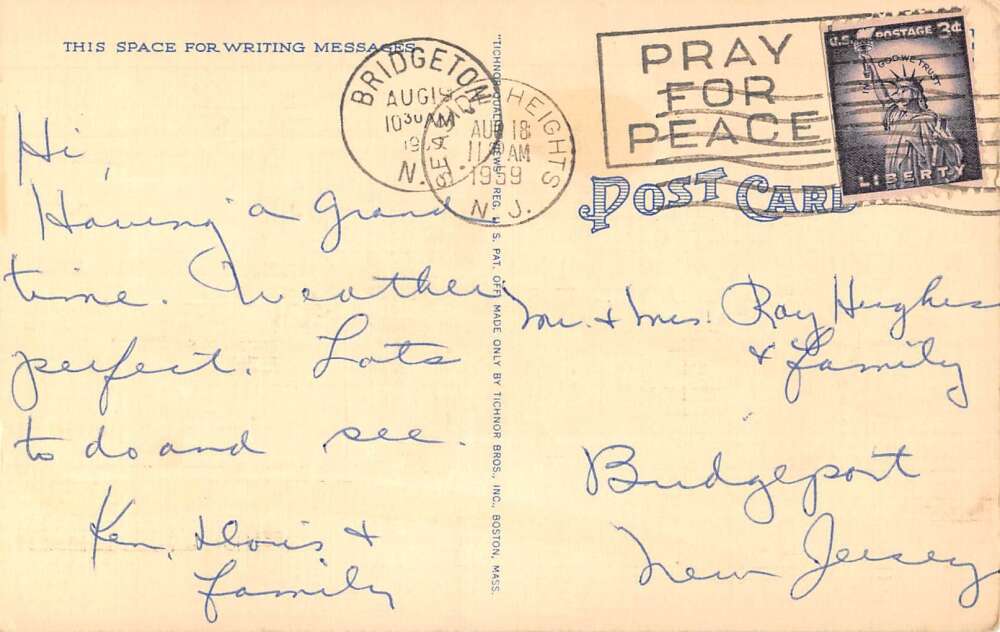 THIS SPACE FOR WRITING MESSAGES
Hi,
Having a grand
time. Weather
perfect. Lots
to do and see.
Ken, Doris +
family
"TICHNOR QUALITY VIEWS," REG. U. S. PAT. OFF. MADE ONLY BY TICHNOR BROS., INC., BOSTON, MASS.
BRIDGETON
AUG 19
10 30 AM
N. J.
HEIGHTS
AUG 18
11 AM
1959
N. J.
PRAY
FOR
PEACE
U.S. POSTAGE 3¢
IN GOD WE TRUST
LIBERTY
POST CARD
Mr. + Mrs. Ray Hughes
+ family
Bridgeport
New Jersey